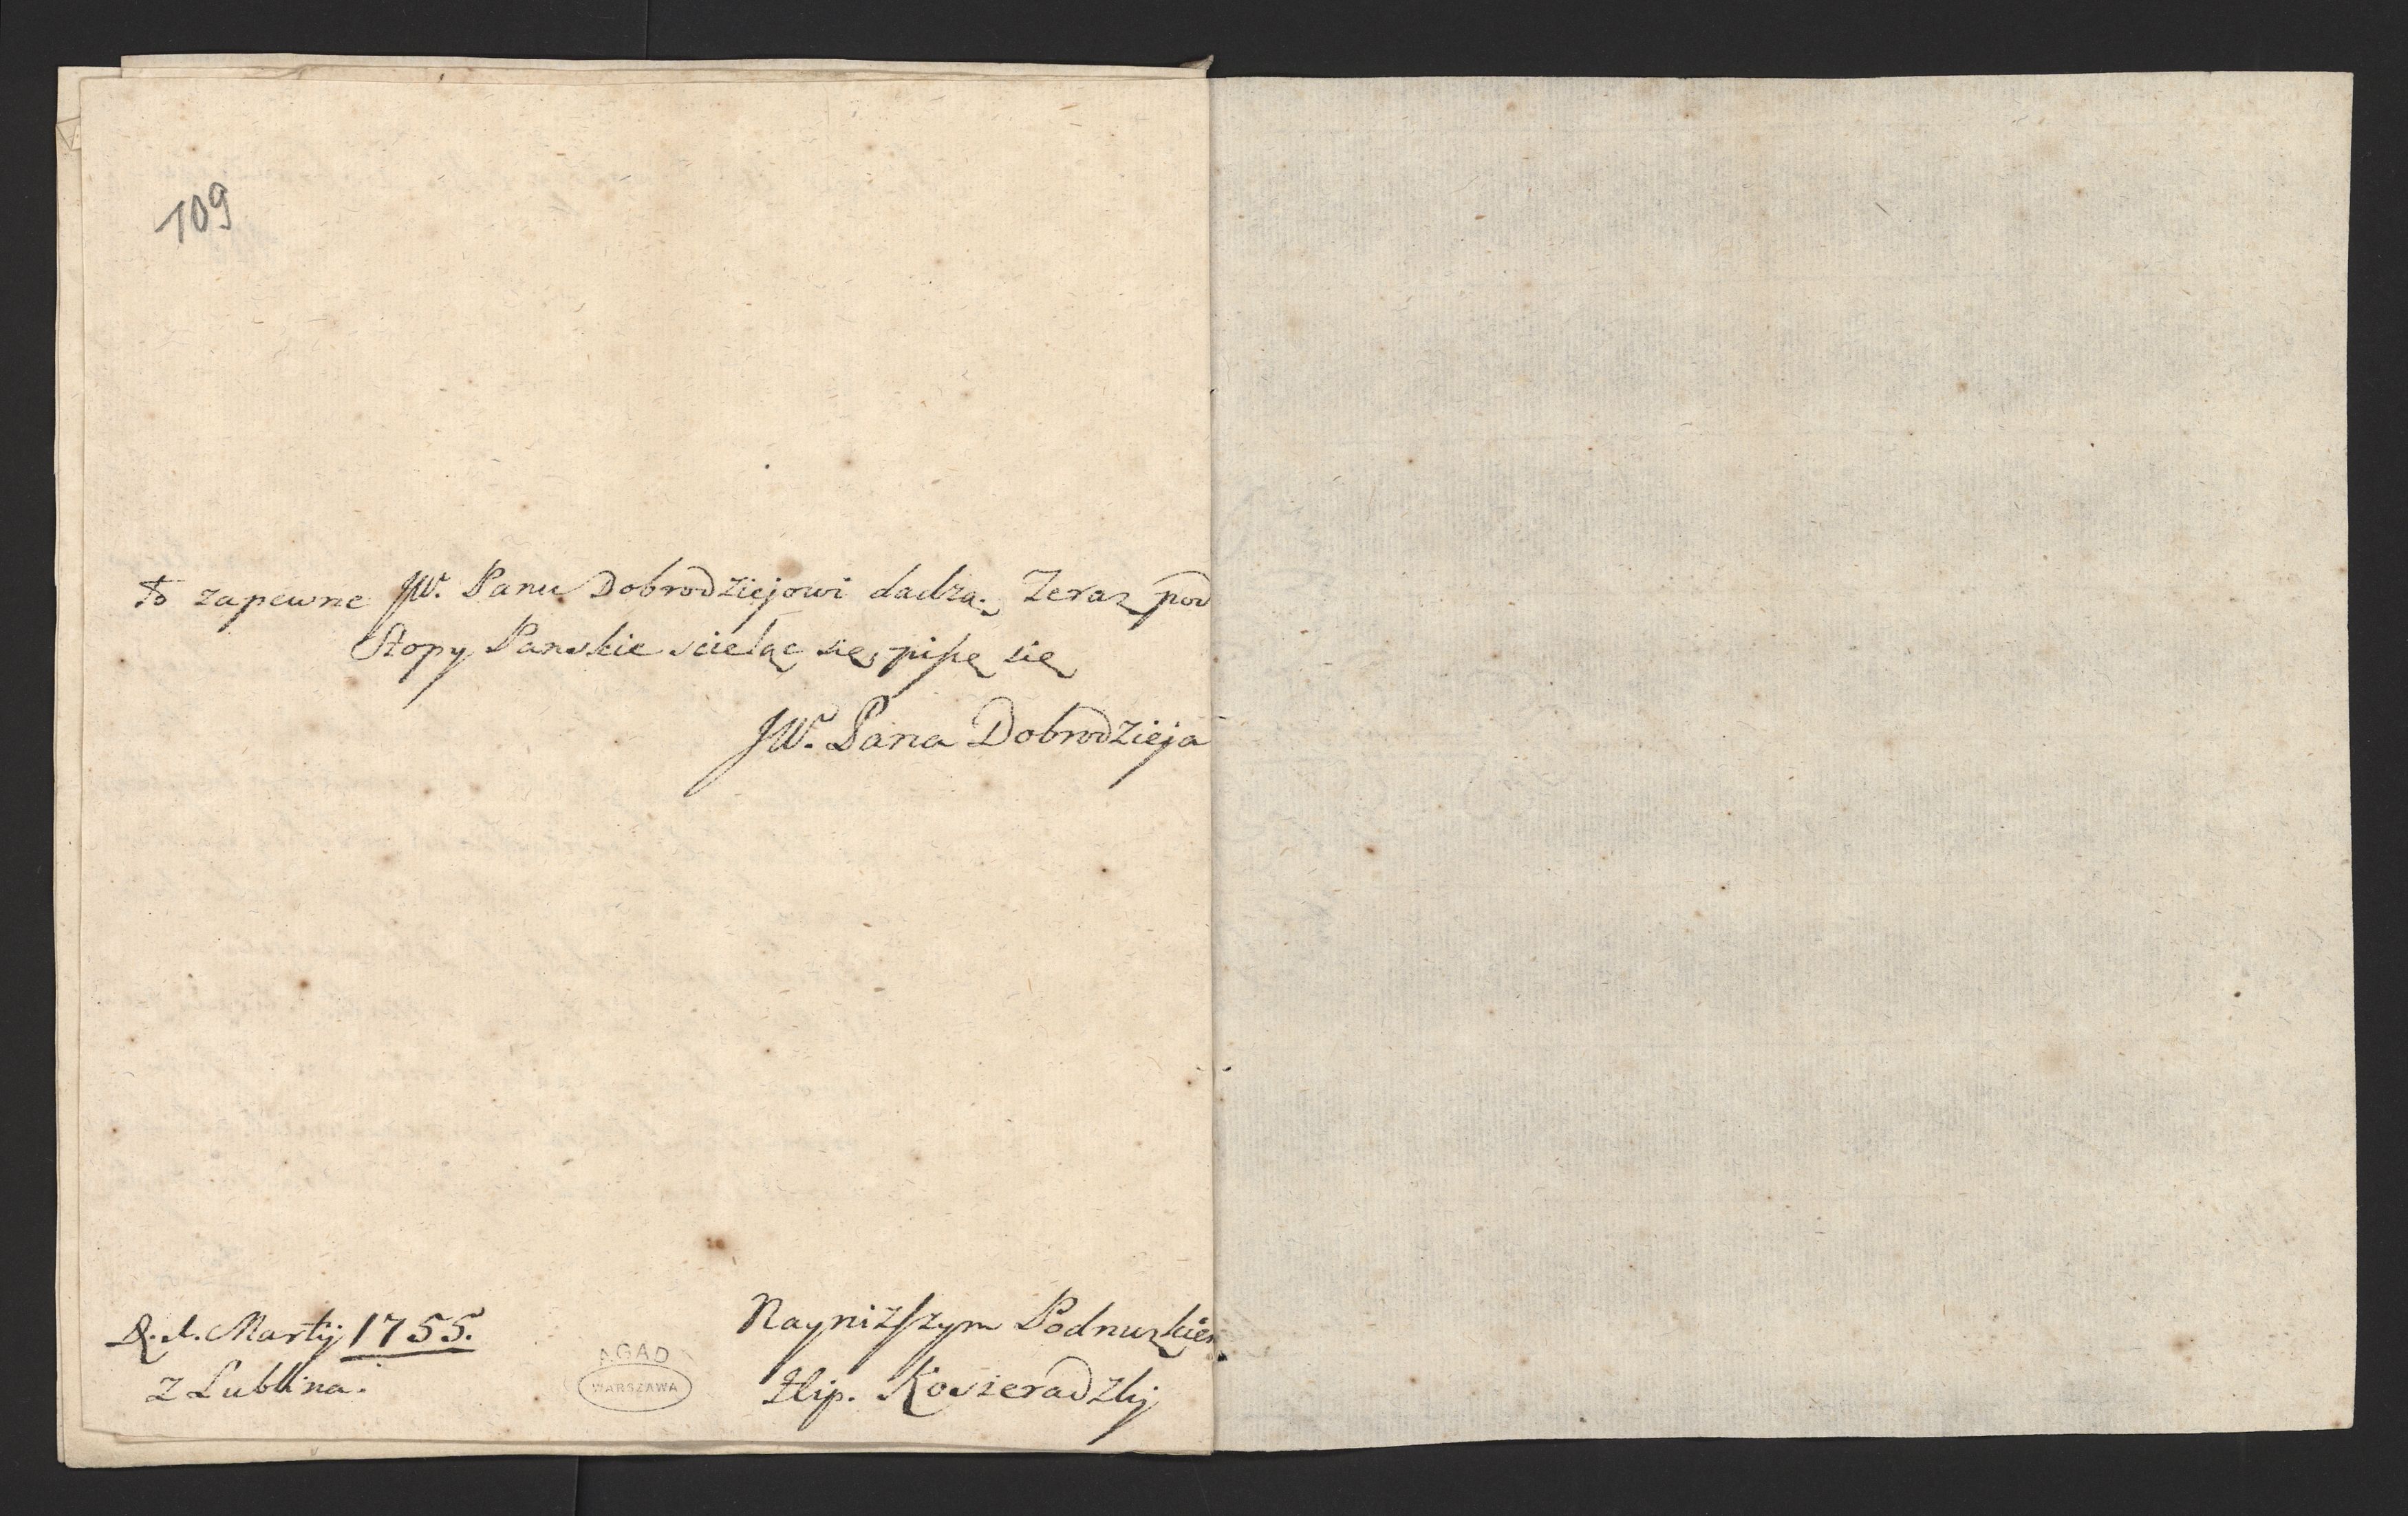 109
to zapewne JW. Panu Dobrodziejowi dadzą. Teraz pod
Stopy Panskie scieląc się, piszę się
JW. Pana Dobrodzieja
Marty 1755.
z Lublina.
AGAD
WARSZAWA
Nayniższym Podnuzkiem
Kosieradzkj